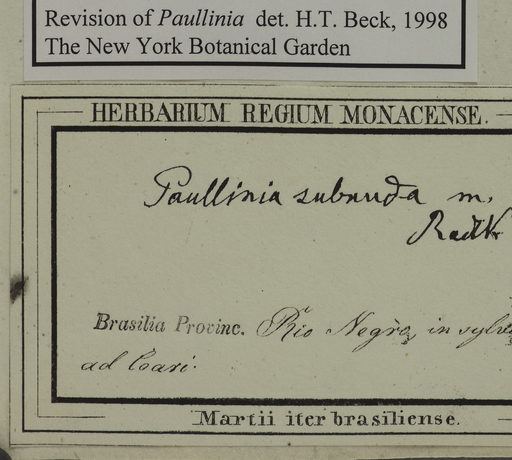 Revision of Paullinia det. H.T. Beck, 1998
The New York Botanical Garden
HERBARIUM REGIUM MONACENSE.
Paullinia subnuda m.
Radlk
Brasilia Provinc. Rio Negro, in sylvis
ad Coari.
Martii iter brasiliense.